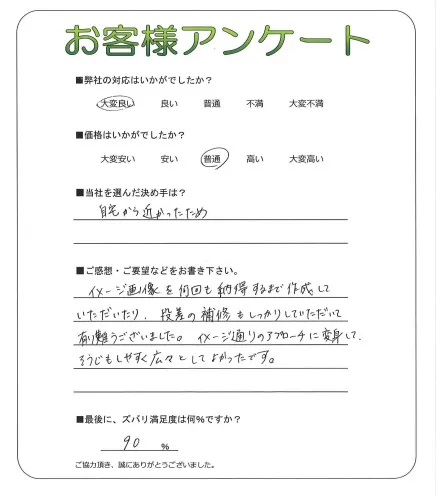 お客様アンケート
■弊社の対応はいかがでしたか?
大変良い 良い 普通 不満 大変不満
■価格はいかがでしたか?
大変安い 安い 普通 高い 大変高い
■当社を選んだ決め手は?
自宅から近かったため
■ご感想・ご要望などをお書き下さい。
イメージ画像を何回も納得するまで作成して
いただいたり、段差の補修もしっかりしていただいて
有難うございました。イメージ通りのアプローチに変身して、
そうじもしやすく広々としてよかったです。
■最後に、ズバリ満足度は何%ですか?
90 %
ご協力頂き、誠にありがとうございました。